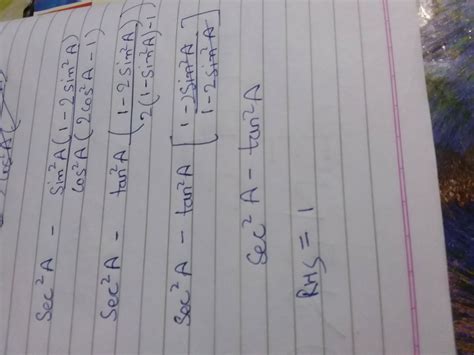 sec²A - sin²A(1-2sin²A) / cos²A(2cos²A-1)
sec²A - tan²A (1-2sin²A) / 2(1-sin²A)-1
sec²A - tan²A [1-2sin²A / 1-2sin²A]
sec²A - tan²A
RHS = 1